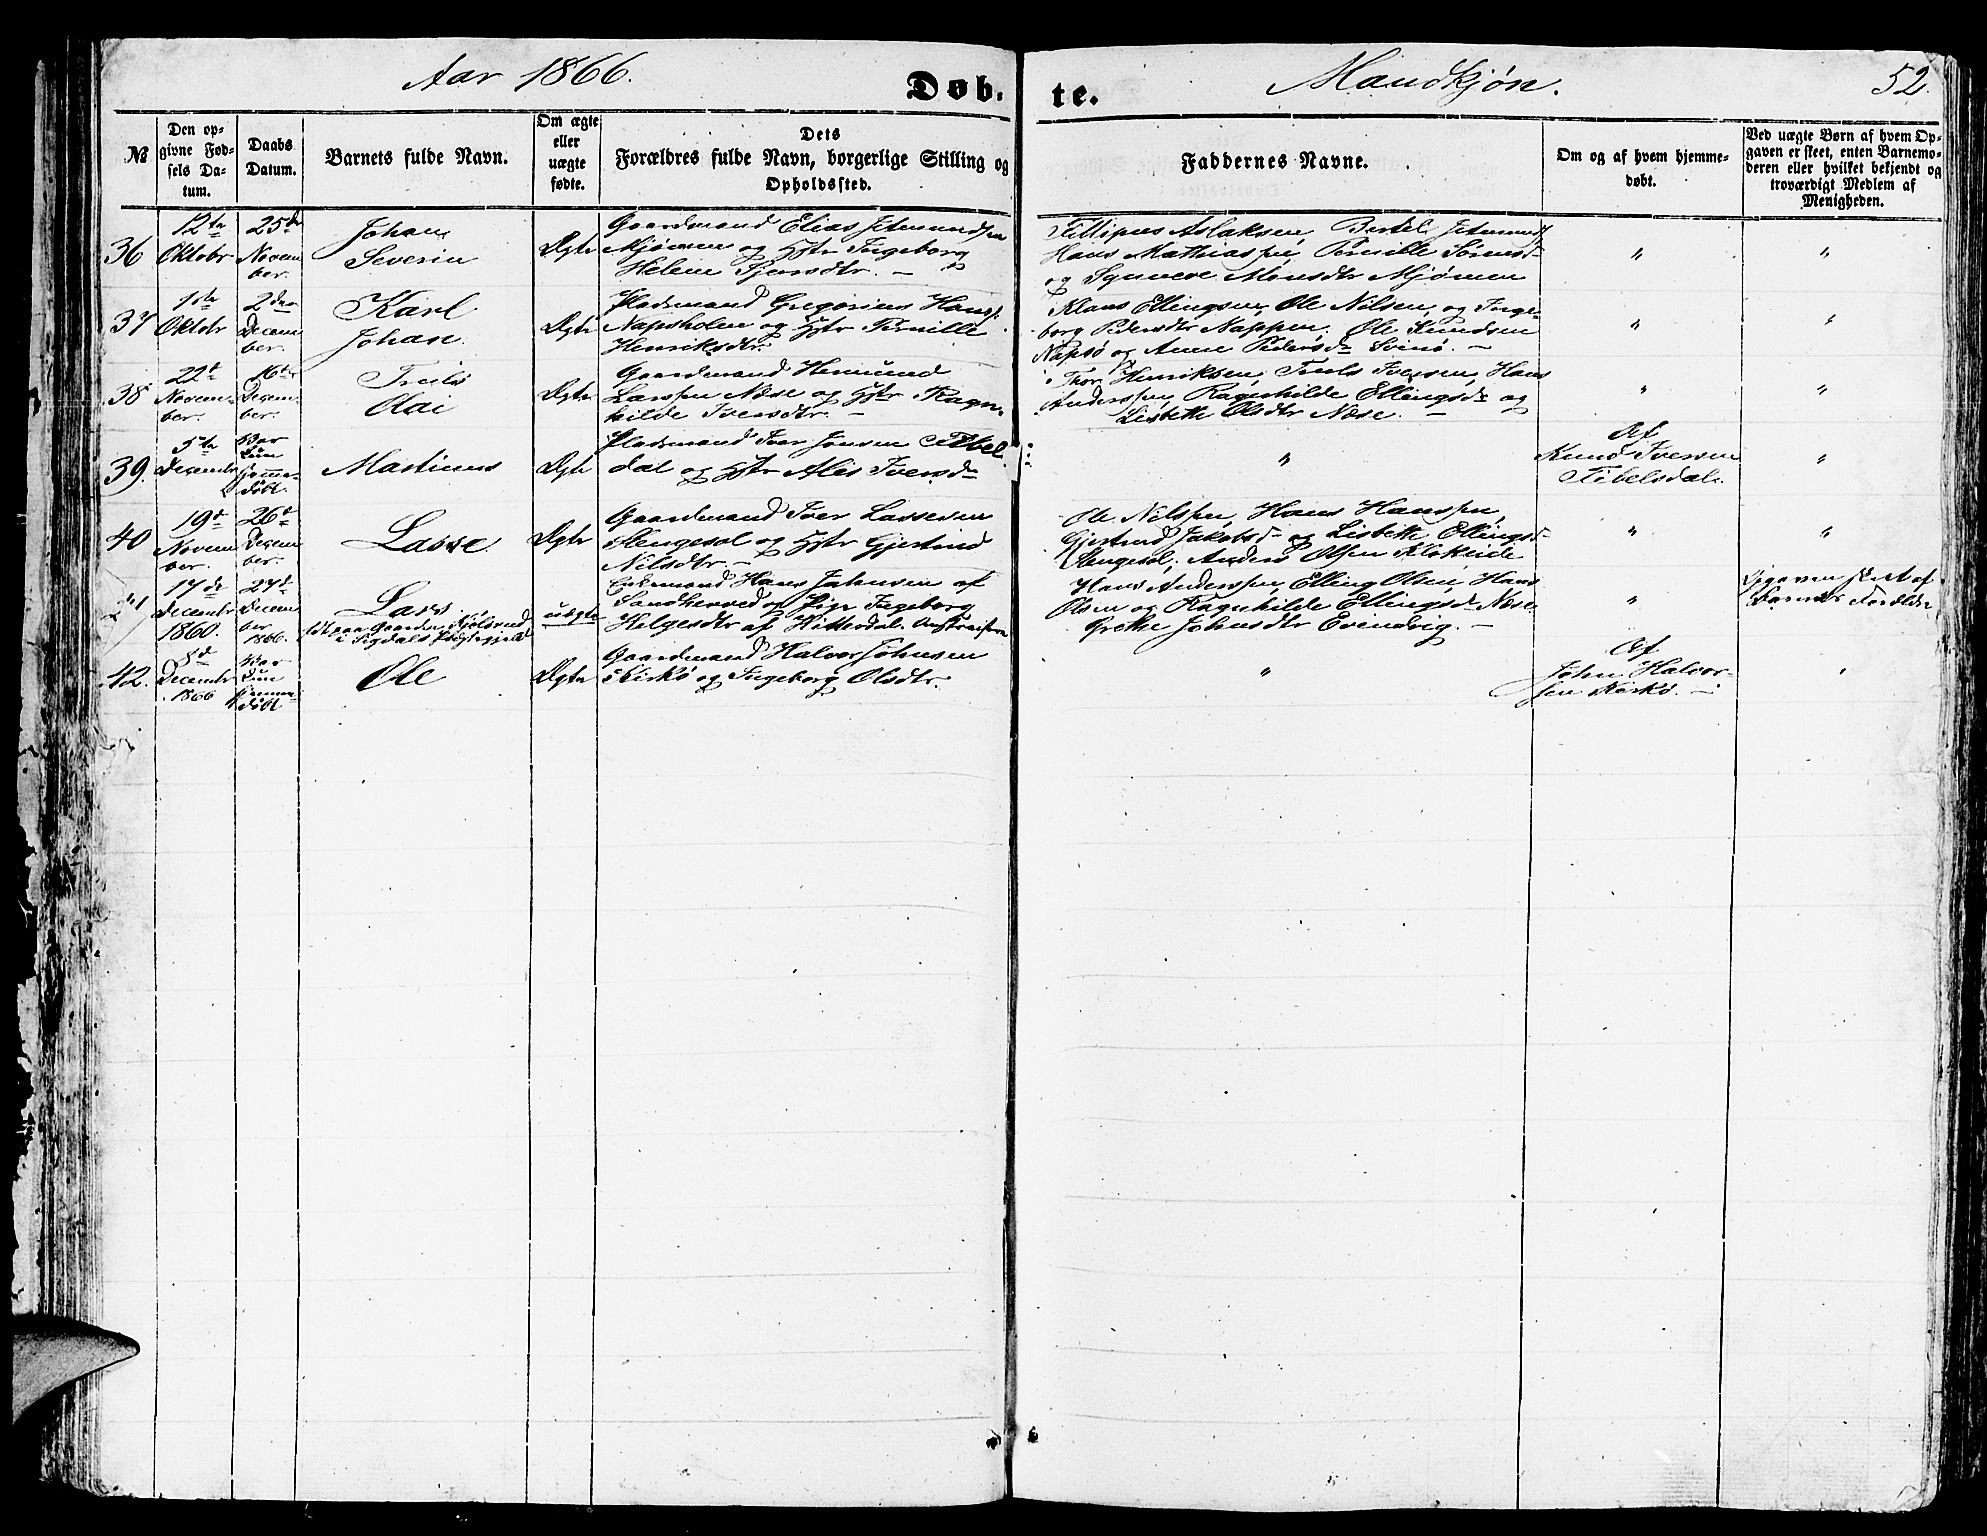 Aar 1866.
Døb-
te.
Mandkjøn.
52.
№
Den op-
givne Fød-
sels Da-
tum.
Daabs
Datum.
Barnets fulde Navn.
Om ægte
eller
uægte
fødte.
Dets
Forældres fulde Navn, borgerlige Stilling og
Opholdssted.
Faddernes Navne.
Om og af hvem hjemme-
døbt.
Ved uægte Børn af hvem Op-
gaven er skeet, enten Barnemo-
deren eller hvilket bekjendt og
troværdigt Medlem af
Menigheden.
36
12te
Oktobr
25de
Novem
ber.
Johan
Severin
Ægte
Gaardmand Elias
Mjømen og Hstr Ingeborg
Helene
Aslaksen, Bertel
Hans Mathiassen, Pernille
og Synneve Monsdtr Mjømen
"
"
37
1ste
Oktobr
2den
Decem
ber.
Karl
Johan.
Ægte
Pladsmand Gregorius Hans.
Napsholm og Hstr Pernille
Henriksdtr.
Klaus Ellingsen, Ole Nilsen, og Inge-
borg Pedersdtr Nappen. Ole Knudsen
Napsø og Anne Pedersd Svinø. –
"
"
38
22d
Novem-
ber.
16de
Decem-
ber.
Truls
Olai
Ægte
Gaardmand Hermund
Larssen Næse og Hstr Ragn-
hilde Iversdtr. –
Thor Henriksen, Truls Iversen, Hans
Anderssen, Ragnhilde Ellingsd og
Lisbeth Olsdtr Næse. –
"
"
39.
5te
Decembr
Bar
Hjemme-
døbt.
Martinus
Ægte
Pladsmand Ivar Jonsen Tibel
dal og Hstr Alis Iversd
"
Af
Knud Iversen
Tibelsdal.
"
40
19d
Novem
ber.
26d
Decem
ber.
Lasse
Ægte
Gaardmand Iver Lassesen
Stengesol og Hstr Gjertrud
Nilsdtr. –
Ole Nilssen, Hans Hanssen,
Gjertrud Jakobsd og Lisbeth Ellingsd
Stengesol, Anders Olsen
"
"
41
17de
Decembr
1860.
27d
Decem
ber
1866.
Lars
født paa Gaarden
i Sigdals Præstegjeld
uægte
Hans Johnsen af
Sandherred og Pige Ingeborg
Helgesdtr af Hitterdal.
Hans Anderssen, Elling Olsen, Hans
Olsen og Ragnhilde Ellingsd Næse
Grethe Johnsdtr Evindvig. –
"
Opgaven skeet af
Barnets Forældre
42.
8d
Decembr
1866
Bar
Hjemme
døbt
Ole
Ægte
Gaardmand Halvor Johnsen
Kirkø og Ingeborg Olsdtr.
"
Af
John Halvor-
sen Kirkø. –
"